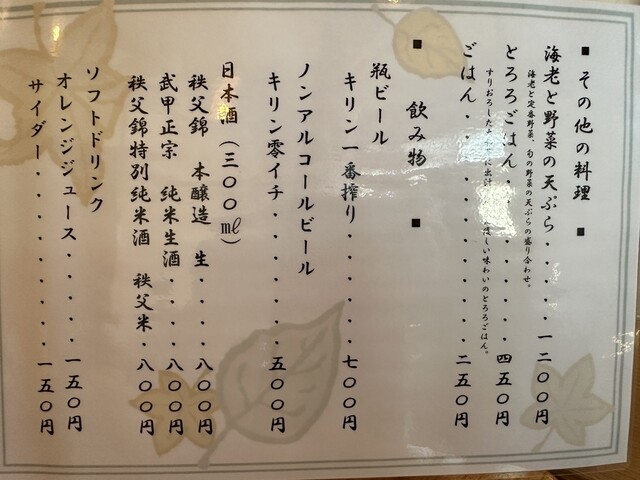 ■ その他の料理 ■
海老と野菜の天ぷら・・・・・一二〇〇円
海老と定番野菜、旬の野菜の天ぷらの盛り合わせ。
とろろごはん・・・・・・・・四五〇円
すりおろした に出汁 しい味わいのとろろごはん。
ごはん・・・・・・・・・・・二五〇円
■ 飲み物 ■
瓶ビール
キリン一番搾り・・・・・・・七〇〇円
ノンアルコールビール
キリン零イチ・・・・・・・・五〇〇円
日本酒(三〇〇㎖)
秩父錦 本醸造 生・・・・・八〇〇円
武甲正宗 純米生酒・・・・・八〇〇円
秩父錦特別純米酒 秩父米・・八〇〇円
ソフトドリンク
オレンジジュース・・・・・・一五〇円
サイダー・・・・・・・・・・一五〇円